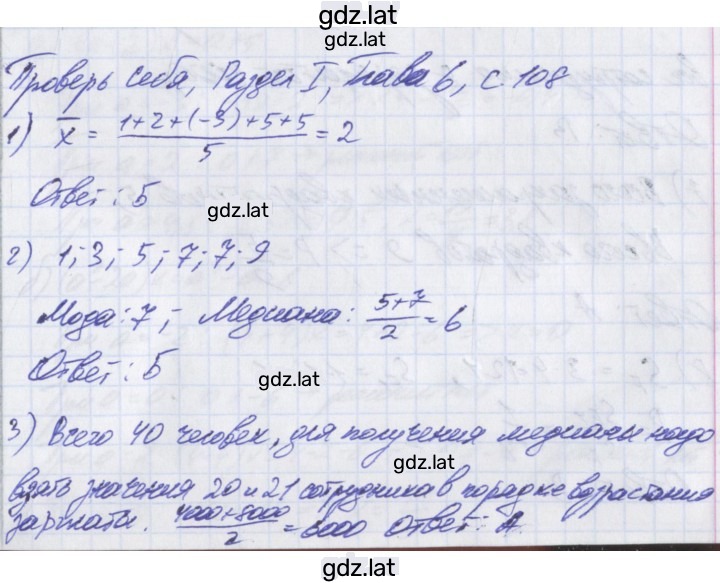 gdz.lat
Проверь себя, Раздел I, Глава 6, с. 108
1) x̄ = (1+2+(-3)+5+5)/5 = 2
Ответ: Б
gdz.lat
2) 1; 3; 5; 7; 7; 9
Мода: 7; Медиана: (5+7)/2 = 6
Ответ: Б
gdz.lat
3) Всего 40 человек, для получения медианы надо
gdz.lat
взять значения 20 и 21 сотрудника в порядке возрастания
зарплаты. (4000+8000)/2 = 6000 Ответ: А
gdz.lat
gdz.lat